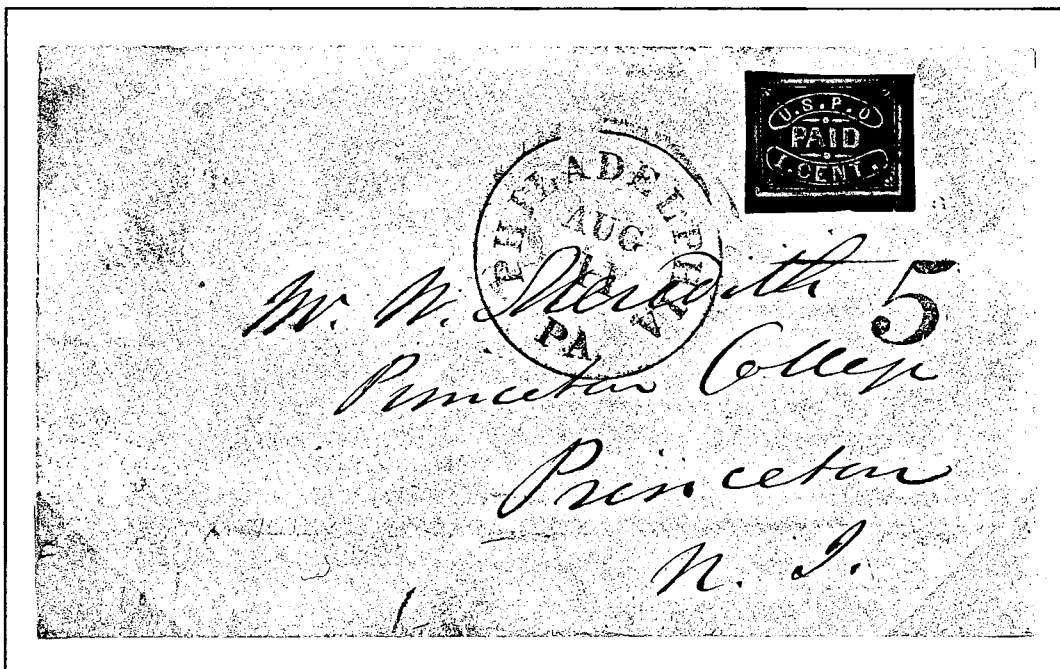 U.S.P.O
PAID
1.CENT.
PHILADELPHIA
AUG
11
PA
5
Mr. W.
Princeton College
Princeton
N. J.